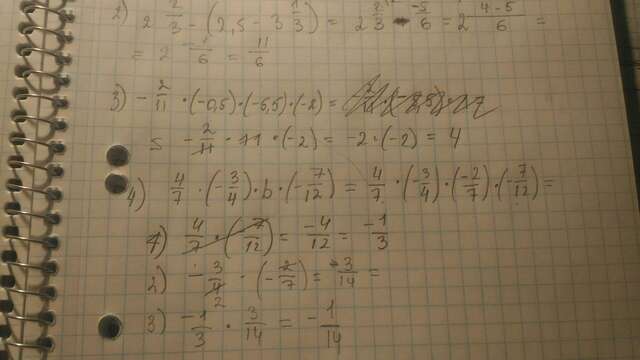 2) 2 2/3 - (2,5 - 3 1/3) = 2 2/3 - -5/6 = 2 4-5/6 =
= 2 -1/6 = 11/6
3) - 2/11 · (-0,5) · (-5,5) · (-2) =
= - 2/11 · 11 · (-2) = -2 · (-2) = 4
4) 4/7 · (-3/4) · b · (-7/12) = 4/7 · (-3/4) · (-2/7) · (-7/12) =
1) 4/7 · (-7/12) = -4/12 = -1/3
2) - 3/4 · (-2/7) = 3/14 =
2
3) -1/3 · 3/14 = - 1/14